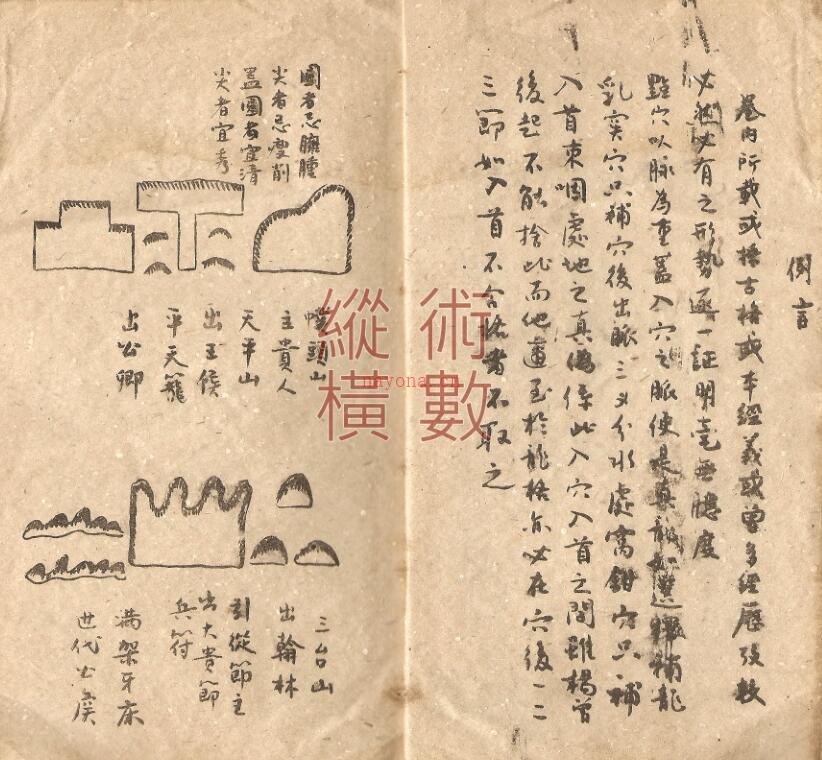 例言
卷內所載或據古格或本經義或曾多經歷效驗
必然必有之形勢逐一証明毫無臆度
點穴以脉為重蓋入穴之脈便是真龍如
補龍
乳突穴只補穴後出脈三叉分水處窩鉗穴只補
入首束咽處地之真偽係此入穴入首之間雖楊曾
後起不能捨此而他適至於龍格亦必在穴後一二
三節如入首不合格者不取之
圓者忌臃腫
尖者忌瘦削
蓋圓者宜清
尖者宜秀
幞頭山
主貴人
天平山
出王侯
平天籠
出公卿
三台山
出翰林
引從節主
出大貴節
兵符
滿架牙床
世代公侯
縱橫
術數
nayona.cn